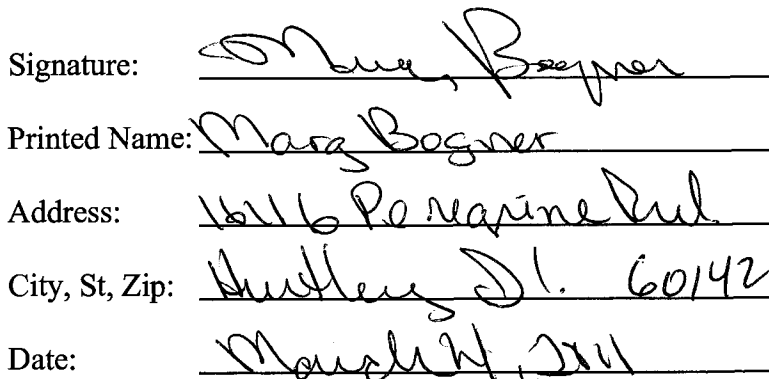 Signature: Mary Bogner
Printed Name: Mary Bogner
Address: Peregrine Trl.
City, St, Zip: Huntley Il. 60142
Date: March